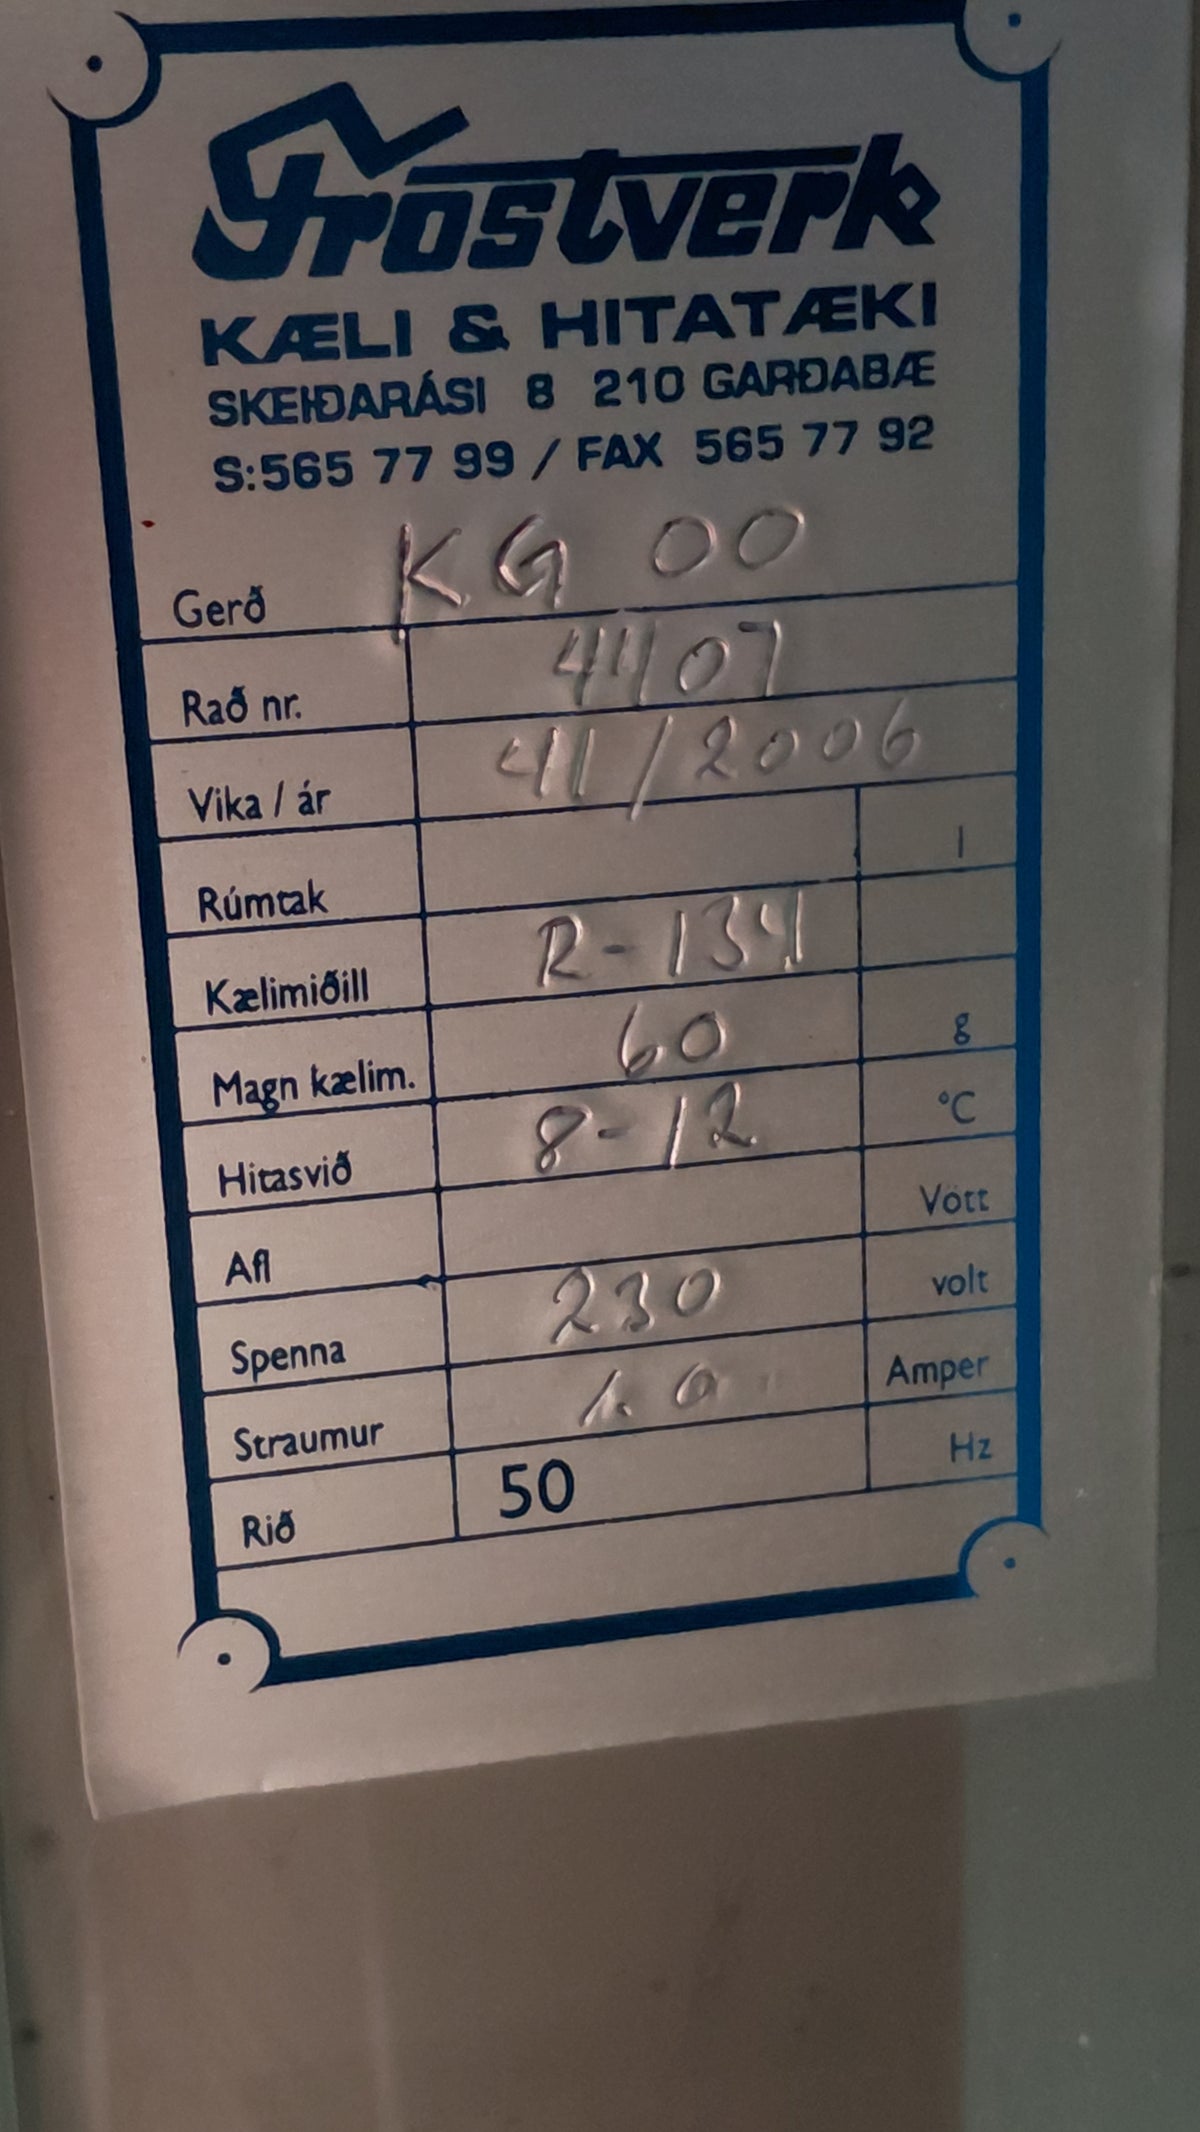 Frostverk
KÆLI & HITATÆKI
SKEIÐARÁSI 8 210 GARÐABÆ
S:565 77 99 / FAX 565 77 92
Gerð KG 00
Rað nr. 4407
Vika / ár 41/2006
Rúmtak l
Kælimiðill R-134
Magn kælim. 60 g
Hitasvið 8-12 °C
Afl Vött
Spenna 230 volt
Straumur 1.0 Amper
Rið 50 Hz